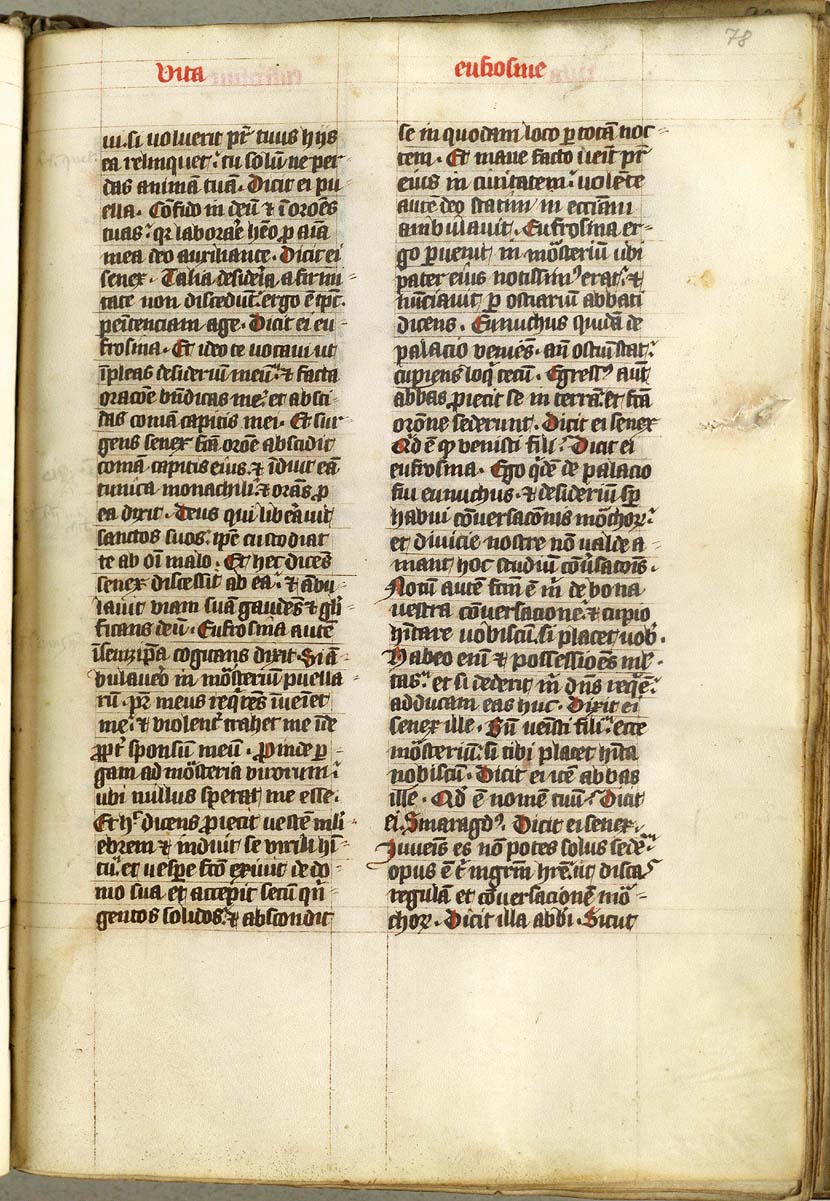 78
Vita eufrosine
ui. si voluerit pr̄ tuus hijs
ea relinquet. tu solū ne per-
das animā tuā. Dicit ei pu-
ella. Confido in deū & ī orōēs
tuas. qr laborare hēo ꝑ aīa
mea deo auxiliante. Dicit ei
senex. Talia desideria a firmi-
tate non discedunt. ergo ē tps̄.
penitenciam age. Dicit ei eu-
frosina. Et ideo te vocaui ut
īpleas desideriū meū. & facta
oracōne bn̄dicas me. et absci-
das comā capitis mei. Et sur-
gens senex fcā orōne abscidit
comā capitis eius. & īduit eā
tunica monachili. & orans ꝓ
ea dixit. Deus qui liberauit
sanctos suos. ipse custodiat
te ab oī malo. Et hec dicēs
senex discessit ab ea. & ābu-
lauit viam suā gaudēs & glī-
ficans deū. Eufrosina autē
ī semetip̄a cogitans dixit. Si ā-
bulauero in mōsteriū puella-
rū. pr̄ meus reqrēs īueniet
me. & violent᷑ trahet me īde
ꝓpt᷑ sponsū meū. Proinde ꝑ-
gam ad mōsteria virorum.
ubi nullus sperat me esse.
Et hᶜ dicens proiecit vestē mli-
ebrem & induit se virili hī-
tu. et vespe fcō exiuit de do-
mo sua et accepit secū qn̄-
gentos solidos. & abscondit
se in quodam loco ꝑ totā noc-
tem. Et mane facto uenit pr̄
eius in ciuitatem. volēte
autē deo statim in eccliam
ambulauit. Eufrosina er-
go ꝑuenit in mōsteriū ubi
pater eius notissimꝰ erat. &
nūciauit ꝑ ostiariū abbati
dicens. Eunuchus quidā de
palacio veniēs. an̄ ostiū stat.
cupiens loq̄ tecū. Egressꝰ aut̄
abbas. proiecit se in terrā. et fcā
orōne sederunt. Dicit ei senex
Qd ē ꝙ venisti fili? Dicit ei
eufrosina. Ego qdē de palacio
fui eunuchus. & desideriū sp̄
habui cōuersacōnis mōchoꝝ.
et diuicie nostre nō valde a-
mant hoc studiū cōūsatōīs.
Notū autē fcm̄ ē m̄ de bona
vestra cōuersacione. & cupio
hītare vobiscū. si placet uob.
Habeo enī & possessiōēs ml̄-
tas. et si dederit m̄ dn̄s reqē.
adducam eas huc. Dixit ei
senex ille. Bn̄ venisti fili. ecce
mōsteriū. si tibi placet hīta
nobiscū. Dicit ei itē abbas
ille. Qd ē nomē tuū? Dicit
ei. Smaragdꝰ. Dicit ei senex.
Iuuenis es nō potes solus sedē.
opus ē t̄ mgrm̄ hrē. ut discaˢ
regulā et cōuersacionē mō-
choꝝ. Dicit illa abbi. Sicut